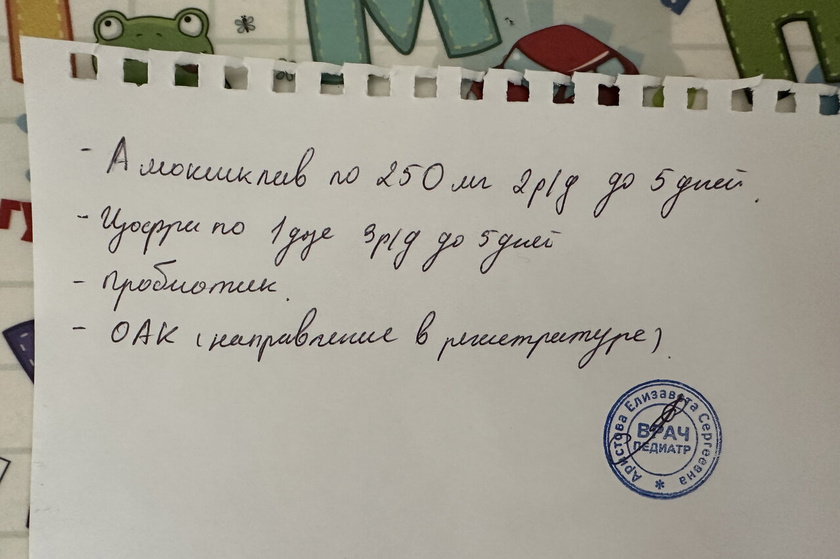 - Амоксиклав по 250 мг 2р/д до 5 дней.
- по 1 дозе 3р/д до 5 дней
- Пробиотик.
- ОАК (направление в регистратуре).
Аристова Елизавета Сергеевна
ВРАЧ
ПЕДИАТР